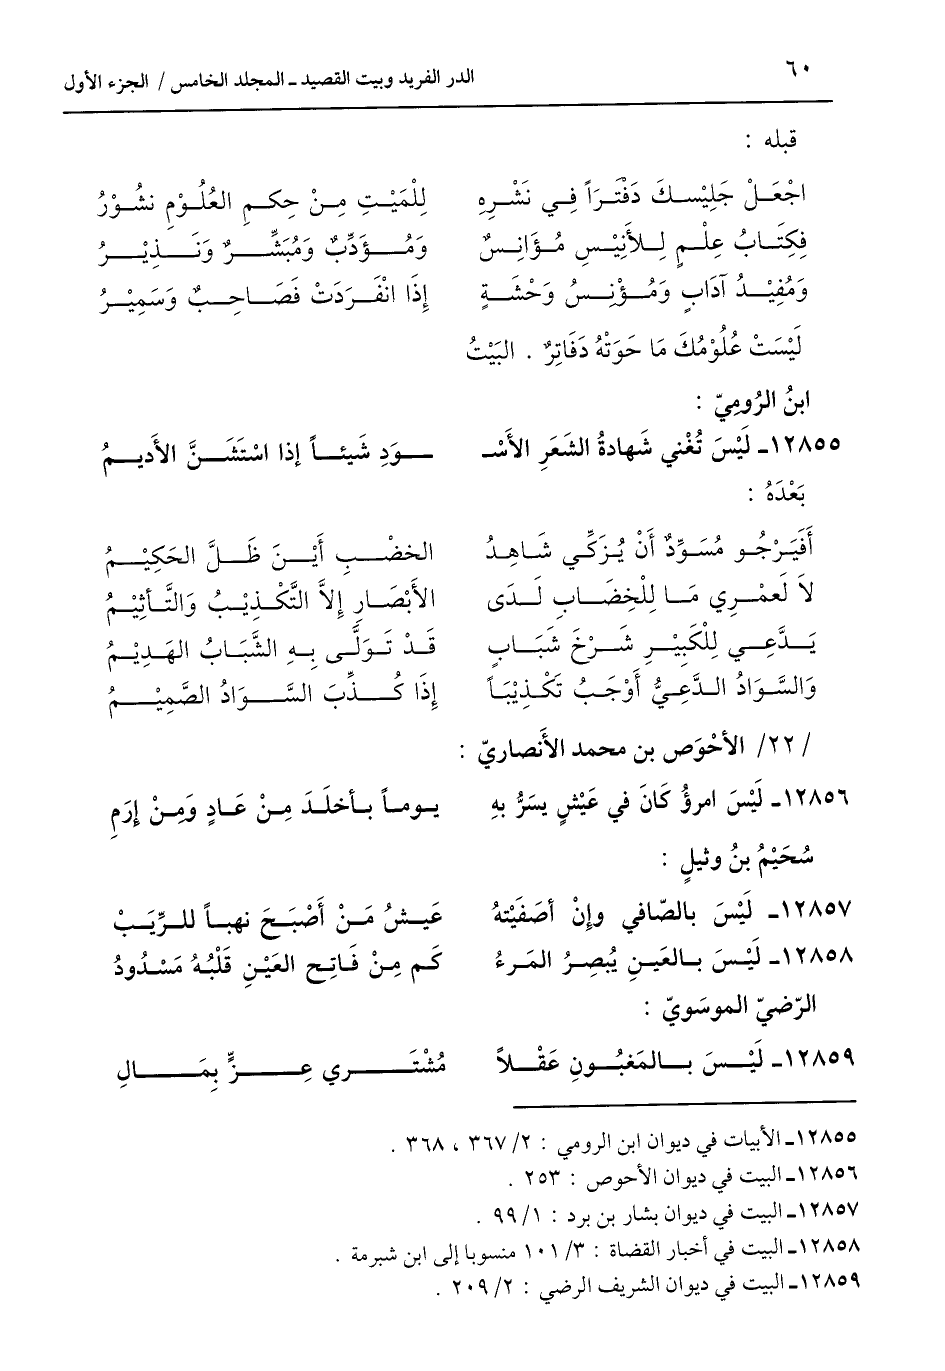 ٦٠
الدر الفريد وبيت القصيد ـ المجلد الخامس / الجزء الأول
قبله :
اجْعَلْ جَلِيْسكَ دَفْتَراً فِي نَشْرِهِ لِلْمَيْتِ مِنْ حِكمِ العُلُوْمِ نشُوْرُ
فِكتَابُ عِلْمٍ لِلأَنِيْسِ مُؤَانِسٌ وَمُؤَدِّبٌ وَمُبَشِّرٌ وَنَذِيْرُ
وَمُفِيْدُ آدَابٍ وَمُؤْنِسُ وَحْشَةٍ إِذَا انْفَرَدَتْ فَصَاحِبٌ وَسَمِيْرُ
لَيْسَتْ عُلُوْمُكَ مَا حَوَتْهُ دَفَاتِرٌ . البَيْتُ
ابنُ الرُوميّ :
١٢٨٥٥ـ لَيْسَ تُغْني شَهادةُ الشَعَرِ الأَسْـ ـوَدِ شَيئاً إذا اسْتَشَنَّ الأَديمُ
بَعْدَهُ :
أَفَيَرْجُو مُسَوِّدٌ أَنْ يُزَكِّي شَاهِدُ الخضْبِ أَيْنَ ظَلَّ الحَكِيْمُ
لاَ لَعمْرِي مَا لِلْخِضَابِ لَدَى الأَبْصَارِ إِلاَّ التَّكْذِيْبُ وَالتَّأثِيْمُ
يَدَّعِي لِلْكَبِيْرِ شَرْخَ شَبَابٍ قَدْ تَوَلَّى بِهِ الشَّبَابُ الهَدِيْمُ
وَالسَّوَادُ الدَّعِيُّ أَوْجَبُ تَكْذِيْبَاً إِذَا كُذِّبَ السَّوَادُ الصَّمِيْمُ
/ ٢٢/ الأحْوَص بن محمد الأَنصاريّ :
١٢٨٥٦ـ لَيْسَ امرؤُ كَانَ في عَيْشٍ يسَرُّ بهِ يوماً بأخلَدَ مِنْ عَادٍ وَمِنْ إرَمِ
سُحَيْمُ بنُ وثيلٍ :
١٢٨٥٧ـ لَيْسَ بالصّافي وإنْ أصَفَيْتهُ عَيشُ مَنْ أَصْبَحَ نهباً للرِّيَبْ
١٢٨٥٨ـ لَيْسَ بالعَينِ يُبصِرُ المَرءُ كَم مِنْ فَاتِح العَيْنِ قَلْبُهُ مَسْدُودُ
الرّضيّ الموسَويّ :
١٢٨٥٩ـ لَيْسَ بالمَغبُونِ عَقْلاً مُشْتَري عِزٍّ بِمَالِ
١٢٨٥٥ـ الأبيات في ديوان ابن الرومي : ٢/ ٣٦٧ ، ٣٦٨ .
١٢٨٥٦ـ البيت في ديوان الأحوص : ٢٥٣ .
١٢٨٥٧ـ البيت في ديوان بشار بن برد : ١/ ٩٩ .
١٢٨٥٨ـ البيت في أخبار القضاة : ٣/ ١٠١ منسوبا إلى ابن شبرمة .
١٢٨٥٩ـ البيت في ديوان الشريف الرضي : ٢/ ٢٠٩ .